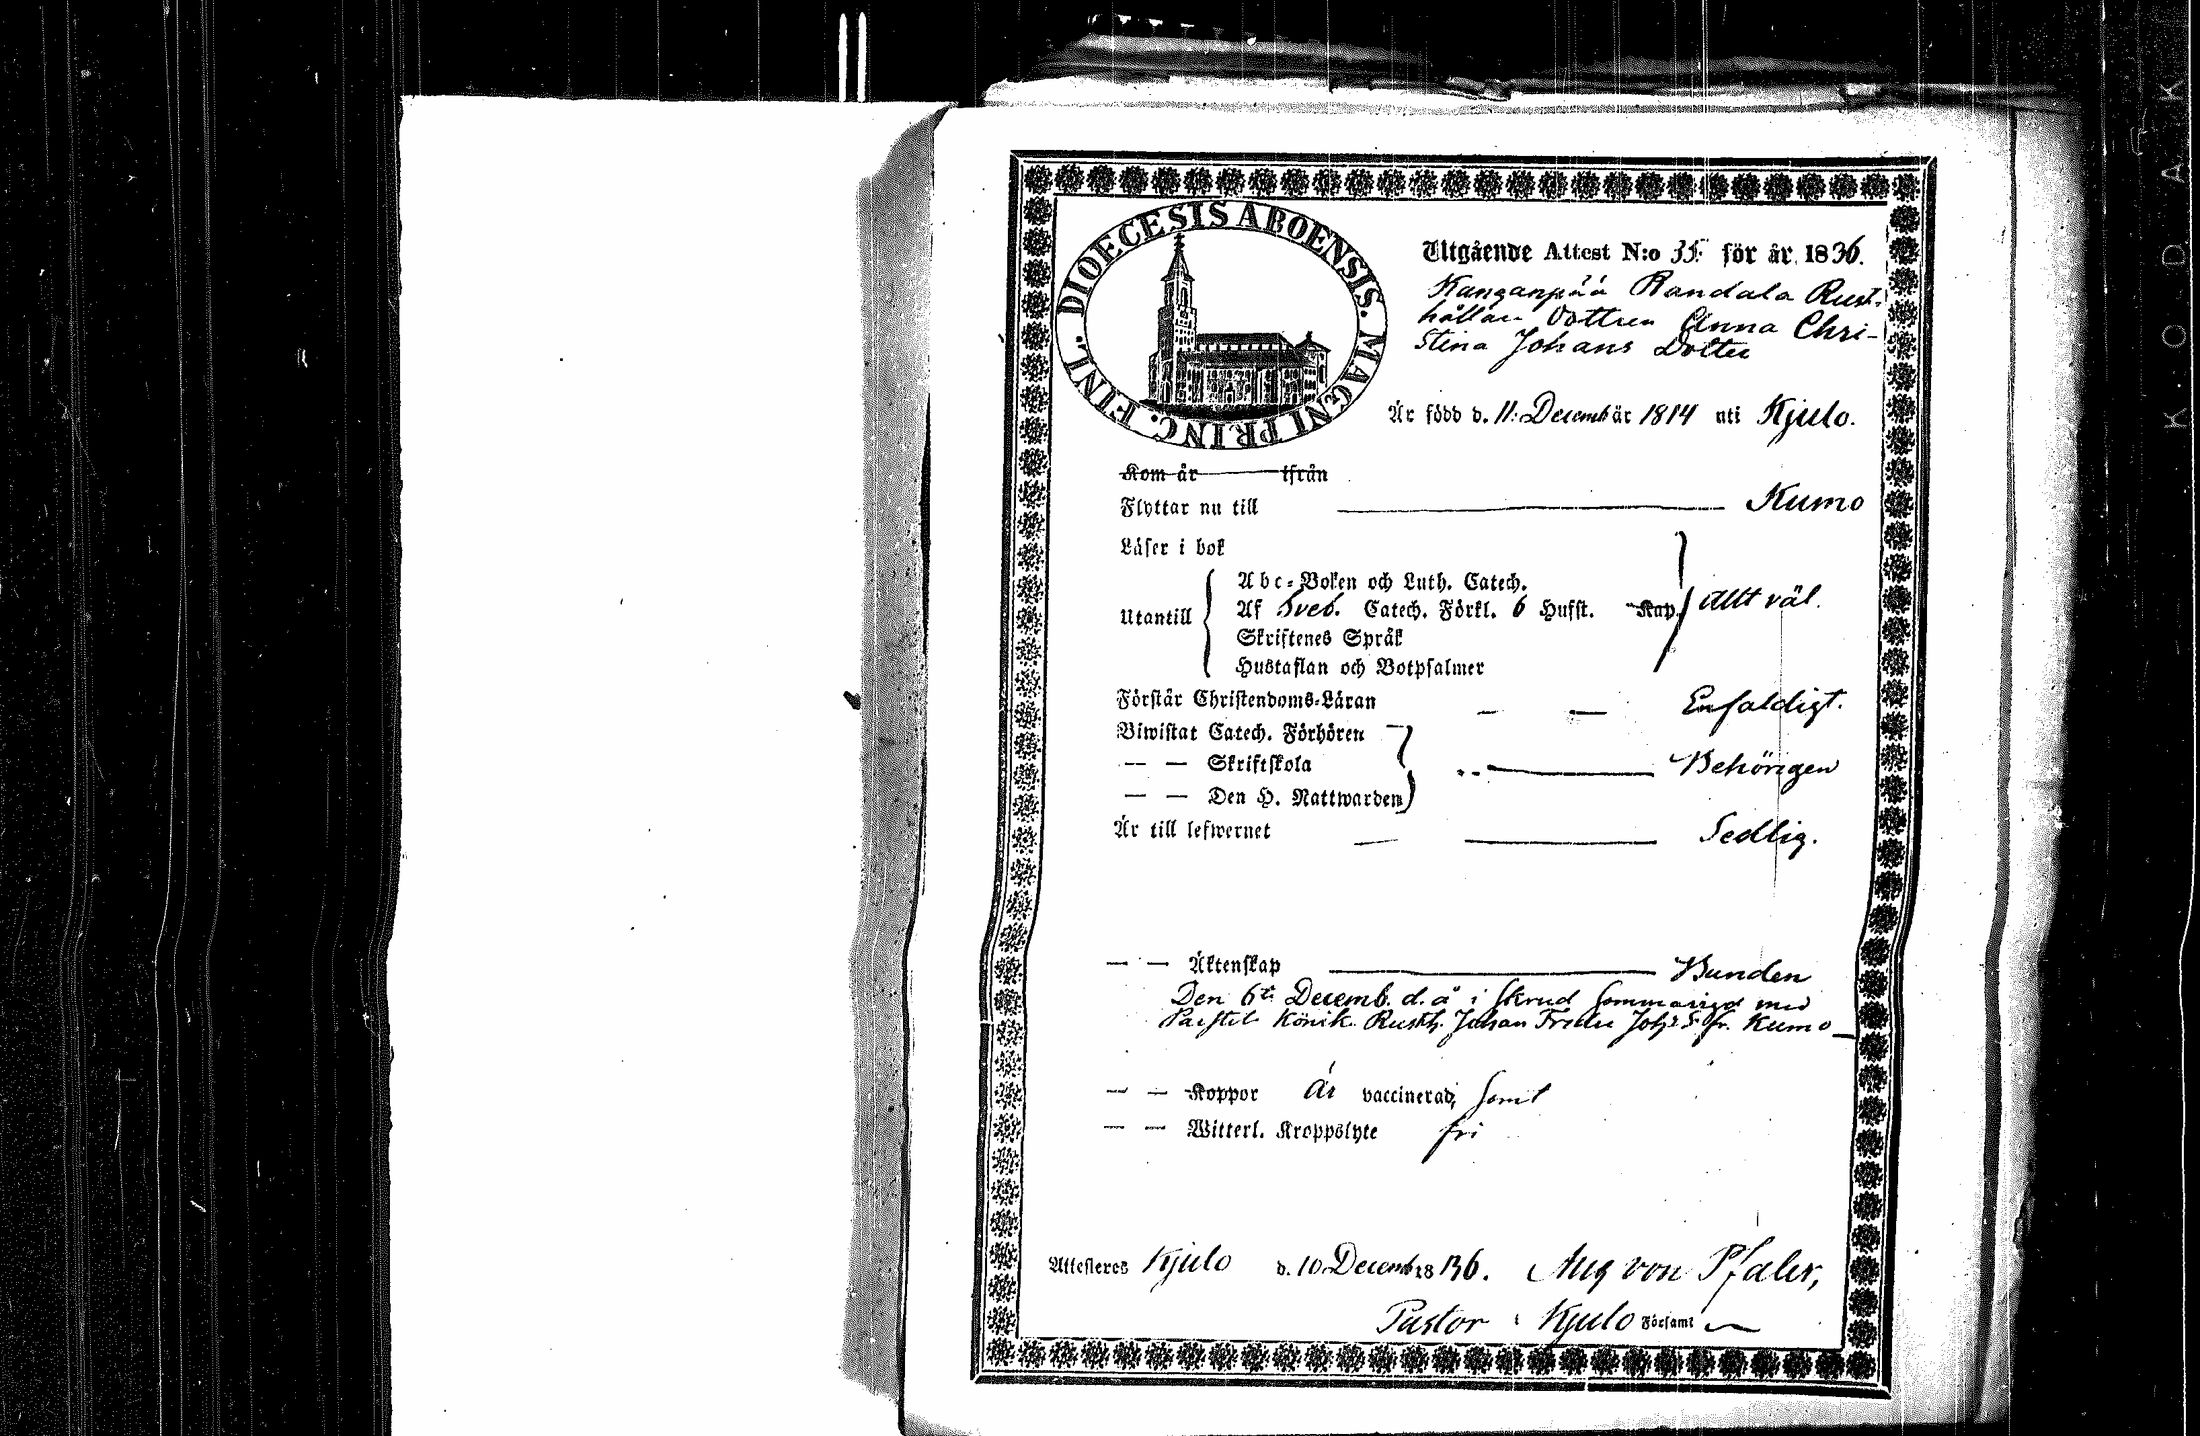 DIOECESIS ABOENSIS. MAGNI PRINC. FINL.
Utgående Attest N:o 35. för år 1836.
Kanganpää Randala Rust-
hållare Dottren Anna Chri-
stina Johans Dotter
Är född d. 11. Decemb år 1814 uti Kjulo.
Kom år ifrån
Flyttar nu till Kumo
Läser i bok
Utantill
Abc-Boken och Luth. Catech.
Af Sveb. Catech. Förkl. 6 Hufst. Kap. Allt väl.
Skriftenes Språk
Hustaflan och Botpsalmer
Förstår Christendoms-Läran — — Enfaldigt.
Biwistat Catech. Förhören
— — Skriftskola Behörigen
— — Den H. Nattwarden
Är till lefwernet — Sedlig.
— — Äktenskap Bunden
Den 6te Decemb. d. å. i Skrud med
Könik Rusth. Johan Fredr Joh: S. fr. Kumo
— — Koppor Är vaccinerad, samt
— — Witterl. Kroppslyte fri
Attesteres Kjulo d. 10 Decemb 1836. Aug von Pfaler,
Pastor i Kjulo Församl
KODAK